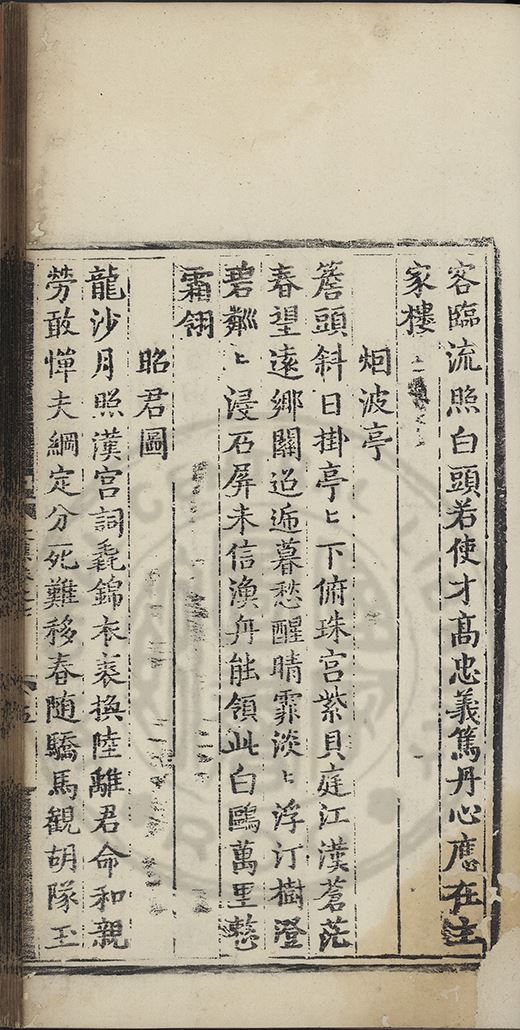 客臨流照白頭若使才高忠義篤丹心應在法
家樓
烟波亭
簷頭斜日掛亭〻下俯珠宮紫貝庭江漢蒼茫
春望遠鄉關迢遞暮愁醒晴霏淡〻浮汀樹澄
碧粼〻浸石屏未信漁舟能領此白鷗萬里憗
霜翎
昭君圖
龍沙月照漢宮詞毳錦衣裘換陸離君命和親
勞敢憚夫綱定分死難移春随驕馬觀胡隊玉